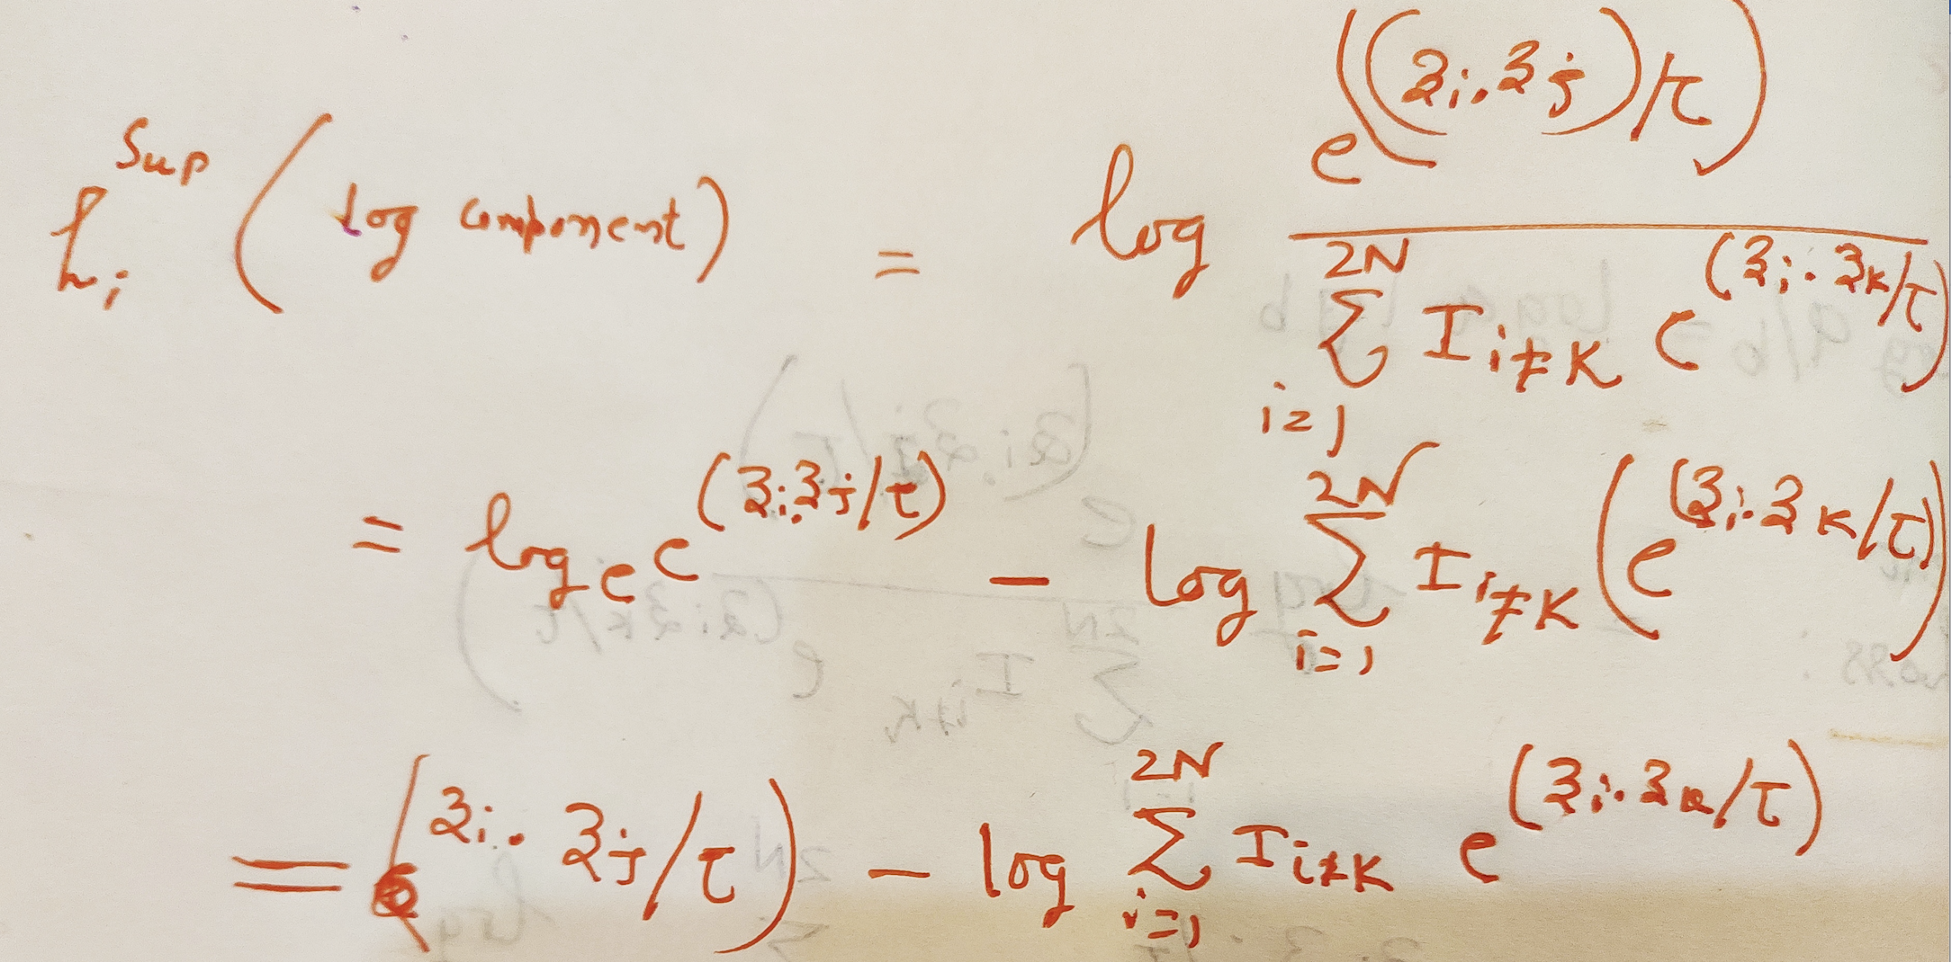 L_i^Sup (log component) = log e^((z_i.z_j)/τ) / Σ_{i=1}^{2N} I_{i≠k} e^(z_i.z_k/τ)
= log_e e^(z_i.z_j/τ) − log Σ_{i=1}^{2N} I_{i≠k} (e^(z_i.z_k/τ))
= (z_i.z_j/τ) − log Σ_{i=1}^{2N} I_{i≠k} e^(z_i.z_k/τ)